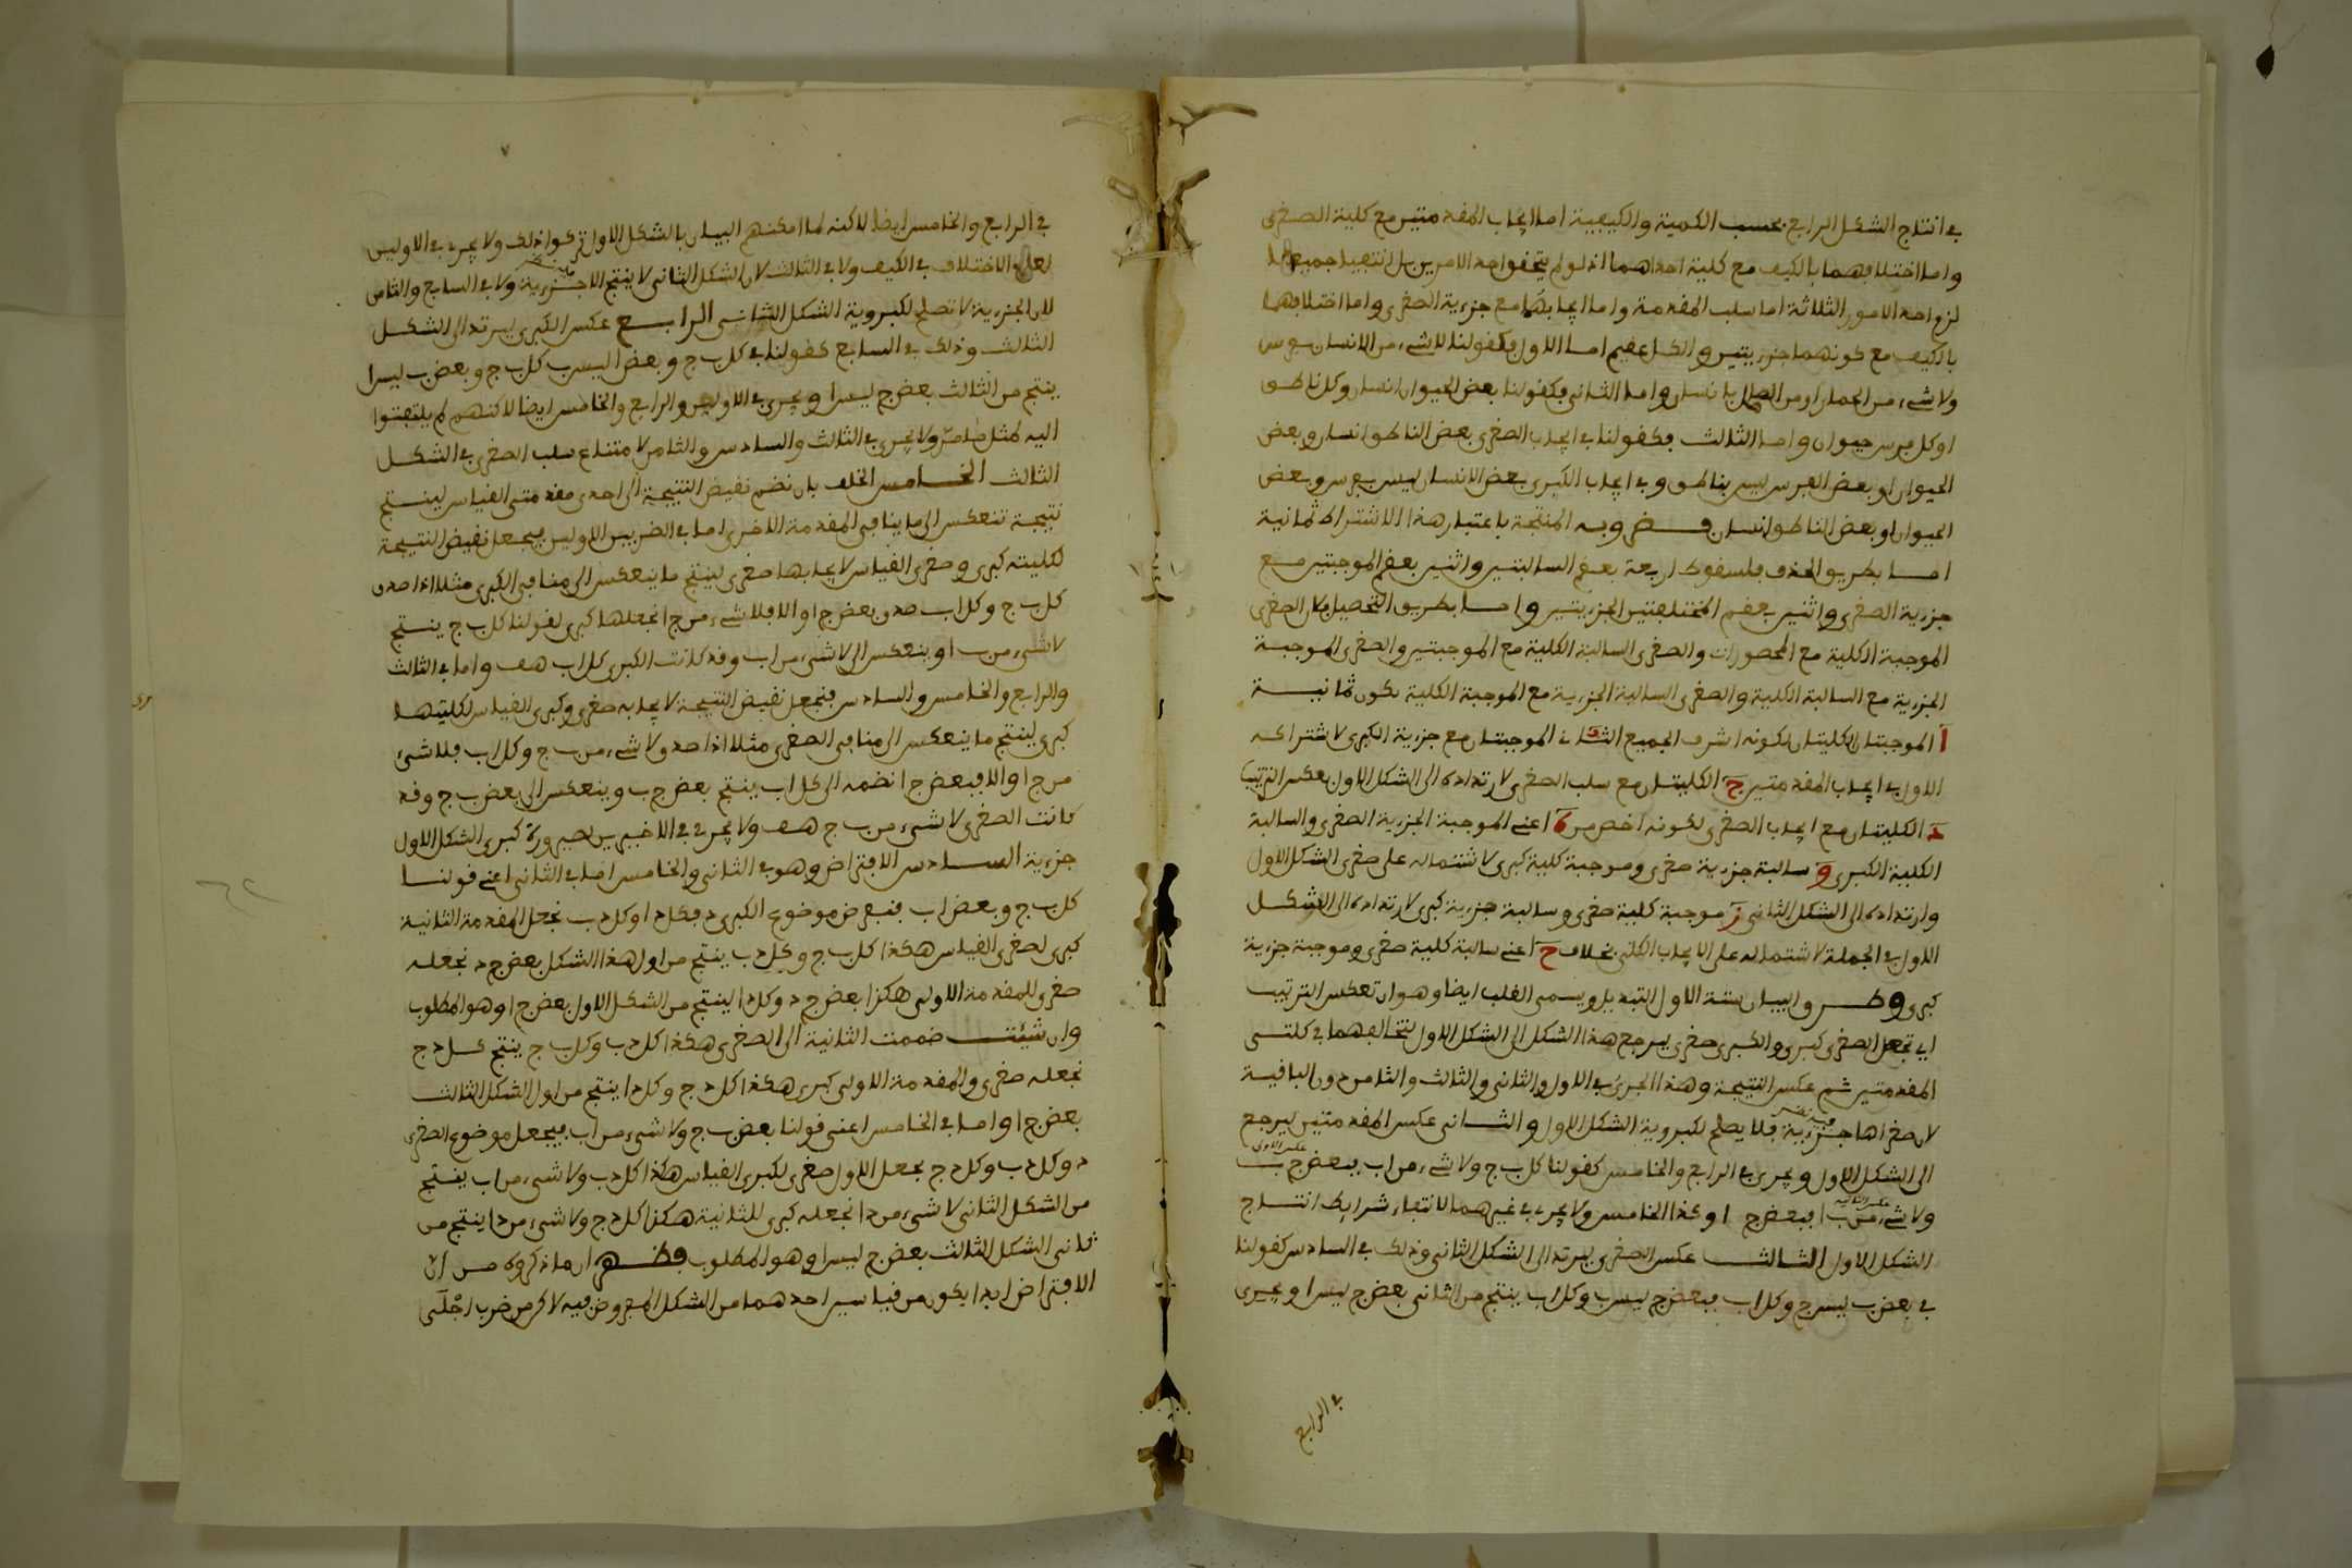 في انتاج الشكل الرابع بحسب الكمية والكيفية اما ايجاب المقدمتين مع كلية الصغرى
واما اختلافهما بالكيف مع كلية احداهما اذ لو لم يتحقق احد الامرين بل انتفيا جميعا
لزم احد الامور الثلاثة اما سلب المقدمة واما ايجابهما مع جزءية الصغرى واما اختلافهما
بالكيف مع كونهما جزءيتين والكل عقيم اما الاول فكقولنا لا شيء من الانسان بفرس
ولا شيء من الحمار او من الصاهل بانسان واما الثاني فكقولنا بعض الحيوان انسان وكل ناطق
او كل فرس حيوان واما الثالث فكقولنا في ايجاب الصغرى بعض الناطق انسان وبعض
الحيوان او بعض الفرس ليس بناطق وفي ايجاب الكبرى بعض الانسان ليس بفرس وبعض
الحيوان او بعض الناطق انسان فضروبه المنتجة باعتبار هذا الاشتراط ثمانية
اما بطريق الحذف فلسقوط اربعة بعقم السالبتين واثنين بعقم الموجبتين مع
جزءية الصغرى واثنين بعقم المختلفتين الجزءيتين واما بطريق التحصيل فلان الصغرى
الموجبة الكلية مع المحصورات والصغرى السالبة الكلية مع الموجبتين والصغرى الموجبة
الجزءية مع السالبة الكلية والصغرى السالبة الجزءية مع الموجبة الكلية يكون ثمانية
ا الموجبتان الكليتان لكونه اشرف الجميع الثاني الموجبتان مع جزءية الكبرى لاشتراكه
الاول في ايجاب المقدمتين ج الكليتان مع سلب الصغرى لارتداده الى الشكل الاول بعكس الترتيب
د الكليتان مع ايجاب الصغرى لكونه اخص من ه اعني الموجبة الجزءية الصغرى والسالبة
الكلية الكبرى و سالبة جزءية صغرى وموجبة كلية كبرى لاشتماله على صغرى الشكل الاول
وارتداده الى الشكل الثاني ز موجبة كلية صغرى وسالبة جزءية كبرى لارتداده الى الشكل
الاول في الجملة لاشتماله على الايجاب الكلي بخلاف ح اعني سالبة كلية صغرى وموجبة جزءية
كبرى وطرق البيان ستة الاول التبديل ويسمى القلب ايضا وهو ان تعكس الترتيب
اي تجعل الصغرى كبرى والكبرى صغرى ليرجع هذا الشكل الى الشكل الاول لتخالفهما في كلتي
المقدمتين ثم عكس النتيجة وهذا الجري في الاول والثاني والثالث والثامن دون الباقية
لان صغراها جزءية فلا يصلح لكبروية الشكل الاول والثاني عكس المقدمتين ليرجع
الى الشكل الاول ويجري في الرابع والخامس كقولنا كل ب ج ولا شيء من ا ب فبعض ج ب
عكس الاولى
ولا شيء من ب ا فبعض ج ا وكذا الخامس ولا يجري في غيرهما لانتفاء شرايط انتاج
عكس الثانية
الشكل الاول الثالث عكس الصغرى ليرتد الى الشكل الثاني وذلك في السادس كقولنا
في بعض ب ليس ج وكل ا ب فبعض ج ليس ب وكل ا ب ينتج من الثاني بعض ج ليس ا ويجري
في الرابع
في الرابع والخامس ايضا لاكنه لما امكنهم البيان بالشكل الاول تركوا ذلك ولا يجري في الاولين
لعدم الاختلاف في الكيف ولا في الثالث لان الشكل الثاني لا ينتج الا جزءية ولا في السابع والثامن
لان الجزءية لا تصلح لكبروية الشكل الثاني الرابع عكس الكبرى ليرتد الى الشكل
الثالث وذلك في السابع كقولنا في كل ب ج وبعض ا ليس ب كل ب ج وبعض ب ليس ا
ينتج من الثالث بعض ج ليس ا ويجري في الاولين والرابع والخامس ايضا لاكنهم لم يلتفتوا
اليه لمثل ما مرّ ولا يجري في الثالث والسادس والثامن لامتناع سلب الصغرى في الشكل
الثالث الخامس الخلف بان نضم نقيض النتيجة الى احدى مقدمتي القياس لينتج
نتيجة تنعكس الى ما ينافي المقدمة الاخرى اما في الضربين الاولين فيجعل نقيض النتيجة
لكليته كبرى وصغرى القياس لايجابها صغرى لينتج ما ينعكس الى منافي الكبرى مثلا اذا صدق
كل ب ج وكل ا ب صدق بعض ج ا والا فلا شيء من ج ا نجعلها كبرى لقولنا كل ب ج ينتج
لا شيء من ب ا وينعكس الى لا شيء من ا ب وقد كانت الكبرى كل ا ب هف واما في الثالث
والرابع والخامس والسادس فنجعل نقيض النتيجة لايجابه صغرى وكبرى القياس لكليتها
كبرى لينتج ما ينعكس الى منافي الصغرى مثلا اذا صدق لا شيء من ب ج وكل ا ب فلا شيء
من ج ا والا فبعض ج ا نضمه الى كل ا ب ينتج بعض ج ب وينعكس الى بعض ب ج وقد
كانت الصغرى لا شيء من ب ج هف ولا يجري في الاخيرين لصيرورة كبرى الشكل الاول
جزءية السادس الافتراض وهو في الثاني والخامس اما في الثاني اعني قولنا
كل ب ج وبعض ا ب فنفرض موضوع الكبرى د فكل د ا وكل د ب نجعل المقدمة الثانية
كبرى لصغرى القياس هكذا كل ب ج وكل د ب ينتج من اول هذا الشكل بعض ج د نجعله
صغرى للمقدمة الاولى هكذا بعض ج د وكل د ا لينتج من الشكل الاول بعض ج ا وهو المطلوب
وان شيئت ضممت الثانية الى الصغرى هكذا كل د ب وكل ب ج ينتج كل د ج
نجعله صغرى والمقدمة الاولى كبرى هكذا كل د ج وكل د ا ينتج من اول الشكل الثالث
بعض ج ا واما في الخامس اعني قولنا بعض ب ج ولا شيء من ا ب فيجعل موضوع الصغرى
د وكل د ب وكل د ج نجعل الاول صغرى لكبرى القياس هكذا كل د ب ولا شيء من ا ب ينتج
من الشكل الثاني لا شيء من د ا نجعله كبرى للثانية هكذا كل د ج ولا شيء من د ا ينتج من
ثاني الشكل الثالث بعض ج ليس ا وهو المطلوب فظهر ان ما ذكروه من ان
الافتراض ابدا يكون من قياسين احدهما من الشكل المفروض فيه لاكن من ضرب اجلى